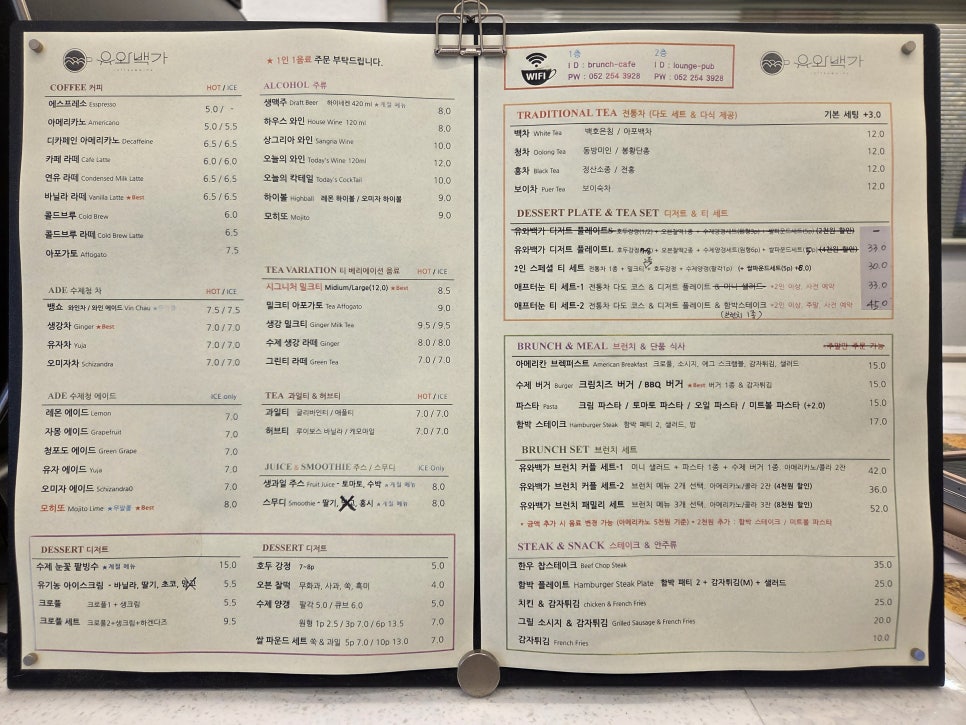 유와백가
★ 1인 1음료 주문 부탁드립니다.
COFFEE 커피 HOT / ICE
에스프레소 Esspresso 5.0 / -
아메리카노 Americano 5.0 / 5.5
디카페인 아메리카노 Decaffeine 6.5 / 6.5
카페 라떼 Cafe Latte 6.0 / 6.0
연유 라떼 Condensed Milk Latte 6.5 / 6.5
바닐라 라떼 Vanilla Latte ★Best 6.5 / 6.5
콜드브루 Cold Brew 6.0
콜드브루 라떼 Cold Brew Latte 6.5
아포가토 Affogato 7.5
ADE 수제청 차 HOT / ICE
뱅쇼 와인차 / 와인 에이드 Vin Chau 7.5 / 7.5
생강차 Ginger ★Best 7.0 / 7.0
유자차 Yuja 7.0 / 7.0
오미자차 Schizandra 7.0 / 7.0
ADE 수제청 에이드 ICE only
레몬 에이드 Lemon 7.0
자몽 에이드 Grapefruit 7.0
청포도 에이드 Green Grape 7.0
유자 에이드 Yuja 7.0
오미자 에이드 Schizandra0 7.0
모히또 Mojito Lime ★무알콜 ★Best 8.0
ALCOHOL 주류
생맥주 Draft Beer 하이네켄 420 ml ★계절 메뉴 8.0
하우스 와인 House Wine 120 ml 8.0
상그리아 와인 Sangria Wine 10.0
오늘의 와인 Today's Wine 120ml 12.0
오늘의 칵테일 Today's CockTail 10.0
하이볼 Highball 레몬 하이볼 / 오미자 하이볼 9.0
모히또 Mojito 9.0
TEA VARIATION 티 베리에이션 음료 HOT / ICE
시그니처 밀크티 Midium/Large(12.0) ★Best 8.5
밀크티 아포가토 Tea Affogato 9.0
생강 밀크티 Ginger Milk Tea 9.5 / 9.5
수제 생강 라떼 Ginger 8.0 / 8.0
그린티 라떼 Green Tea 7.0 / 7.0
TEA 과일티 & 허브티 HOT / ICE
과일티 글리바인티 / 애플티 7.0 / 7.0
허브티 루이보스 바닐라 / 캐모마일 7.0 / 7.0
JUICE & SMOOTHIE 주스 / 스무디 ICE Only
생과일 주스 Fruit Juice - 토마토, 수박 ★계절 메뉴 8.0
스무디 Smoothie - 딸기, 홍시 ★계절 메뉴 8.0
DESSERT 디저트
수제 눈꽃 팥빙수 ★계절 메뉴 15.0
유기농 아이스크림 - 바닐라, 딸기, 초코, 5.5
크로플 크로플1 + 생크림 5.5
크로플 세트 크로플2+생크림+하겐다즈 9.5
DESSERT 디저트
호두 강정 7~8p 5.0
오븐 찰떡 무화과, 사과, 쑥, 흑미 4.0
수제 양갱 팔각 5.0 / 큐브 6.0 5.0
원형 1p 2.5 / 3p 7.0 / 6p 13.5 7.0
쌀 파운드 세트 쑥 & 과일 5p 7.0 / 10p 13.0 7.0
WIFI
1층 2층
ID : brunch-cafe ID : lounge-pub
PW : 052 254 3928 PW : 052 254 3928
유와백가
TRADITIONAL TEA 전통차 (다도 세트 & 다식 제공) 기본 세팅 +3.0
백차 White Tea 백호은침 / 야포백차 12.0
청차 Oolong Tea 동방미인 / 봉황단총 12.0
홍차 Black Tea 정산소종 / 전홍 12.0
보이차 Puer Tea 보이숙차 12.0
DESSERT PLATE & TEA SET 디저트 & 티 세트
유와백가 디저트 플레이트S 호두강정(1/2) + 오븐찰떡1종 + 수제양갱세트(원형3p) + 쌀파운드세트(5p) (2천원 할인) -
유와백가 디저트 플레이트L 호두강정 + 오븐찰떡2종 + 수제양갱세트(원형6p) + 쌀파운드세트( p) (4천원 할인) 33.0
2인 스페셜 티 세트 전통차 1종 + 밀크티 + 호두강정 + 수제양갱(팔각1p) (+ 쌀파운드세트(5p) +6.0) 30.0
애프터눈 티 세트-1 전통차 다도 코스 & 디저트 플레이트 S 미니 샐러드 ★2인 이상, 사전 예약 33.0
애프터눈 티 세트-2 전통차 다도 코스 & 디저트 플레이트 & 함박스테이크 ★2인 이상, 주말, 사전 예약 45.0
(브런치 1종)
BRUNCH & MEAL 브런치 & 단품 식사 ★주말만 주문 가능
아메리칸 브렉퍼스트 American Breakfast 크로플, 소시지, 에그 스크램블, 감자튀김, 샐러드 15.0
수제 버거 Burger 크림치즈 버거 / BBQ 버거 ★Best 버거 1종 & 감자튀김 15.0
파스타 Pasta 크림 파스타 / 토마토 파스타 / 오일 파스타 / 미트볼 파스타 (+2.0) 15.0
함박 스테이크 Hamburger Steak 함박 패티 2, 샐러드, 밥 17.0
BRUNCH SET 브런치 세트
유와백가 브런치 커플 세트-1 미니 샐러드 + 파스타 1종 + 수제 버거 1종, 아메리카노/콜라 2잔 42.0
유와백가 브런치 커플 세트-2 브런치 메뉴 2개 선택, 아메리카노/콜라 2잔 (4천원 할인) 36.0
유와백가 브런치 패밀리 세트 브런치 메뉴 3개 선택, 아메리카노/콜라 3잔 (8천원 할인) 52.0
★ 금액 추가 시 음료 변경 가능 (아메리카노 5천원 기준) ★ 2천원 추가 : 함박 스테이크 / 미트볼 파스타
STEAK & SNACK 스테이크 & 안주류
한우 찹스테이크 Beef Chop Steak 35.0
함박 플레이트 Hamburger Steak Plate 함박 패티 2 + 감자튀김(M) + 샐러드 25.0
치킨 & 감자튀김 chicken & French Fries 25.0
그릴 소시지 & 감자튀김 Grilled Sausage & French Fries 20.0
감자튀김 French Fries 10.0